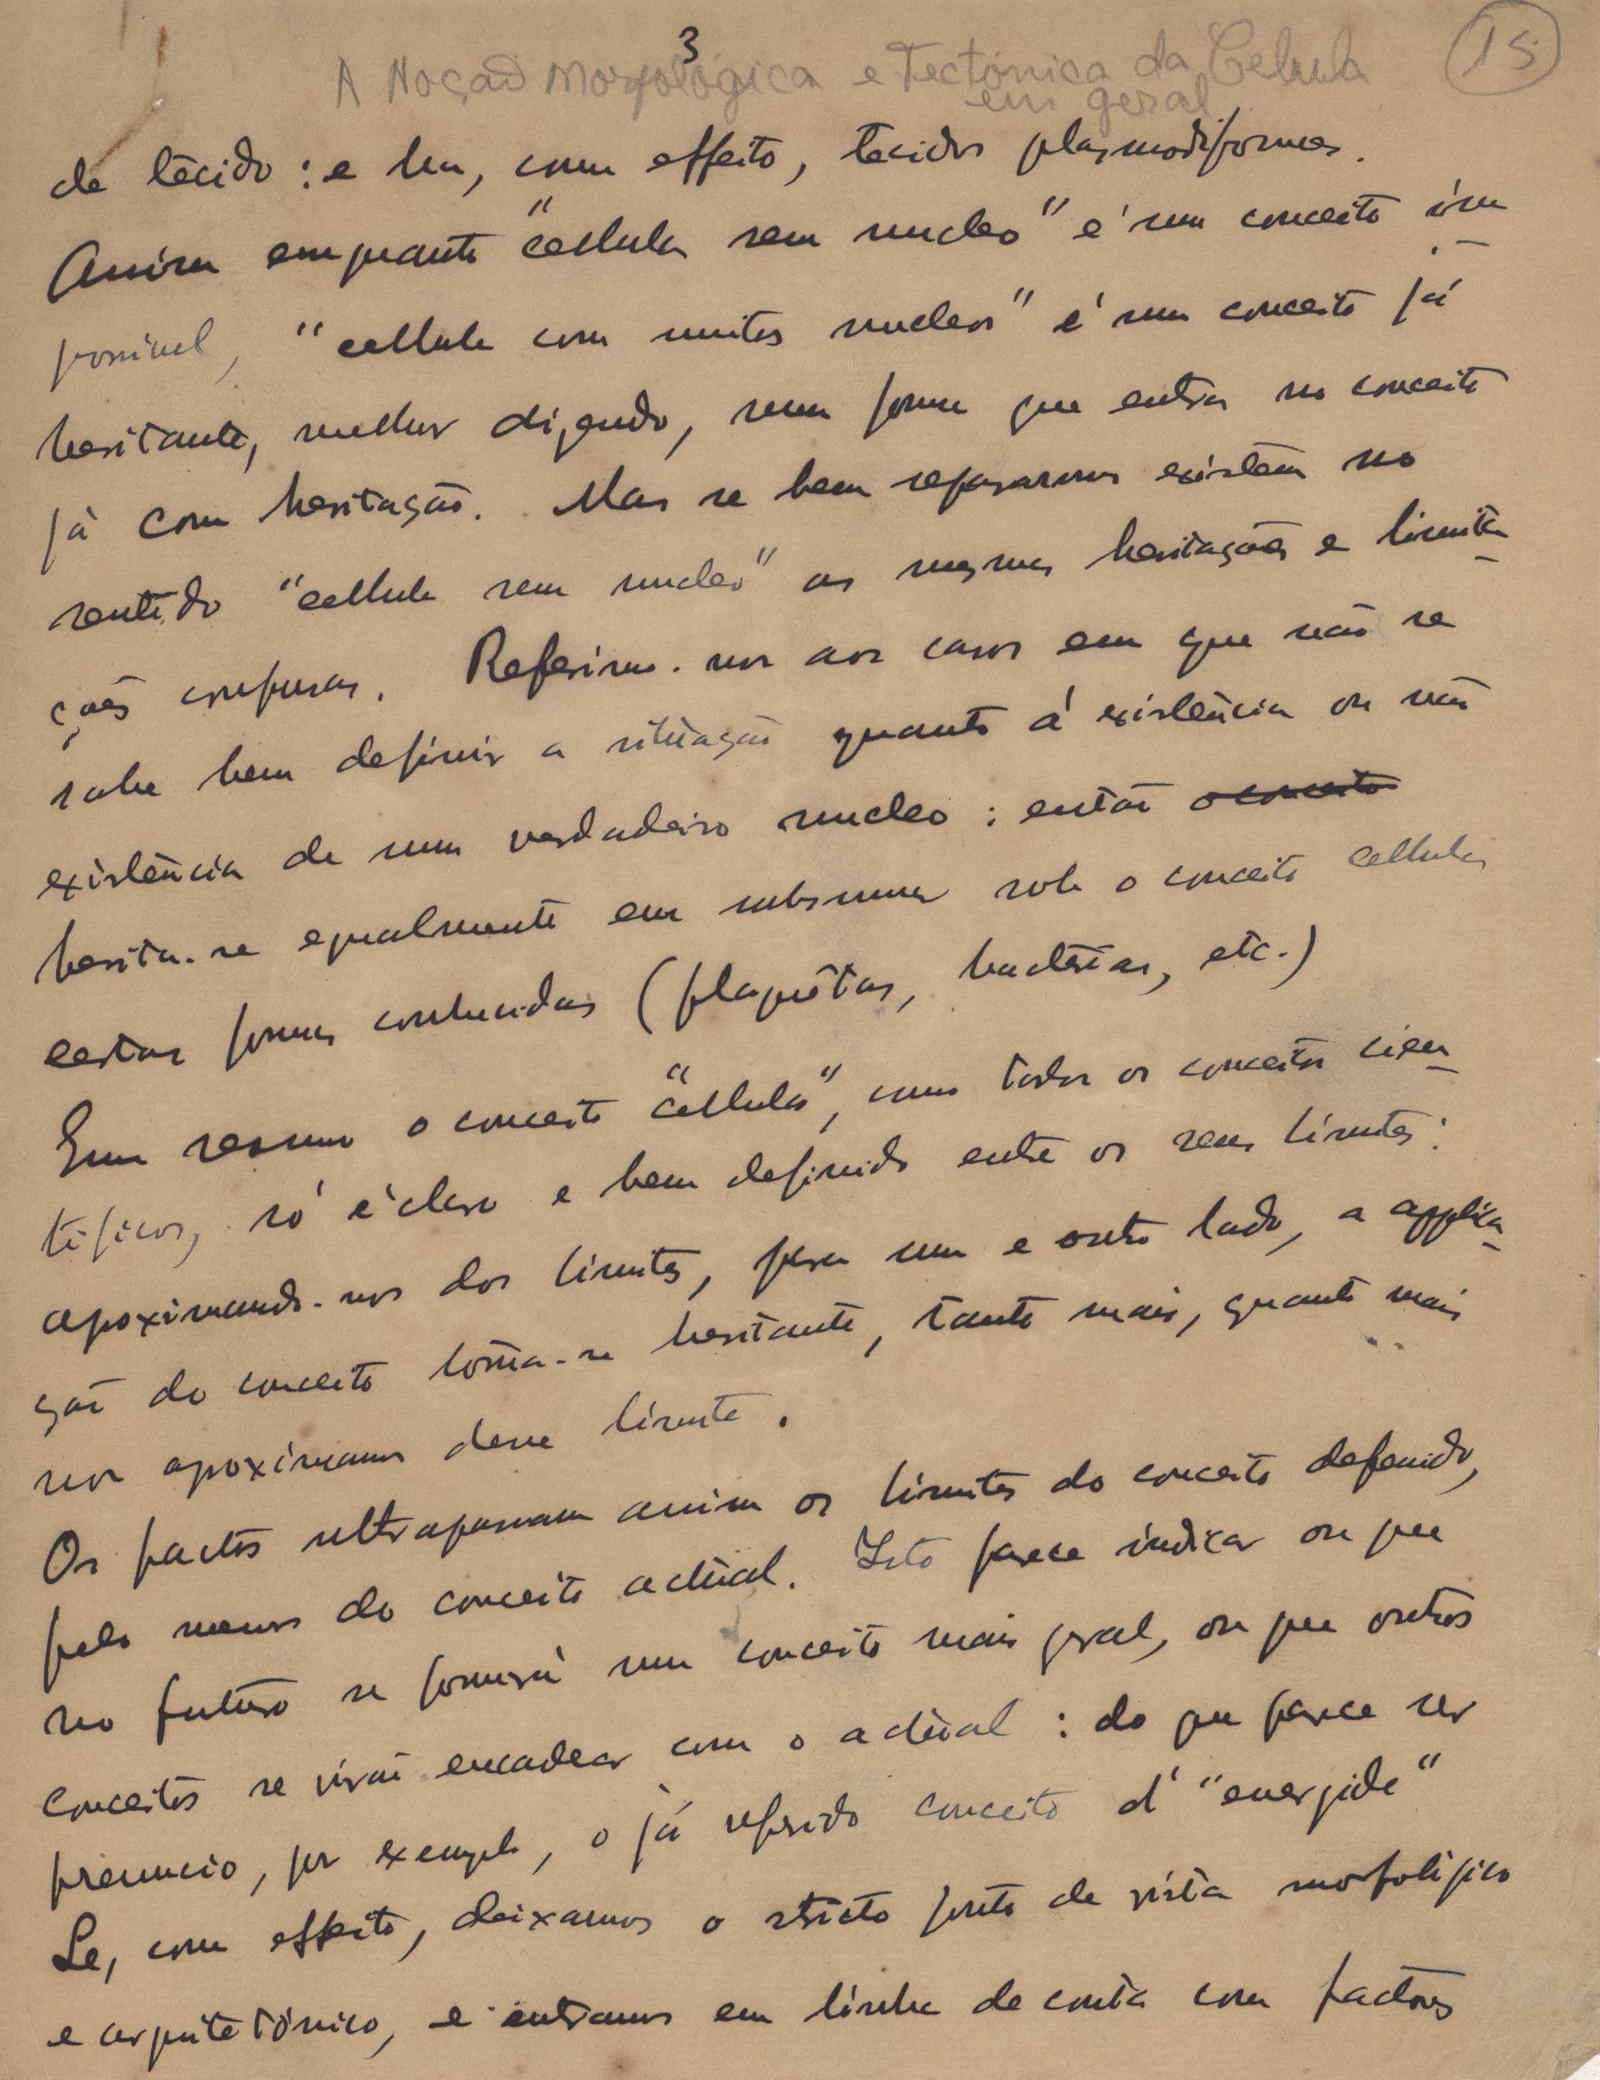 3
15
A Noção Morfológica e Tectónica da Celula
em geral
de tecido : e ha, com effeito, tecidos plasmodiformes.
Assim emquanto "cellula sem nucleo" é um conceito im-
possivel, "cellula com muitos nucleos" é um conceito já
hesitante, melhor dizendo, uma forma que entra no conceito
já com hesitação. Mas se bem repararmos existem no
sentido "cellula sem nucleo" as mesmas hesitações e limita-
ções confusas. Referimo-nos aos casos em que não se
sabe bem definir a situação quanto á existência ou não
existência de um verdadeiro nucleo : então o conceito
hesita-se egualmente em subsumar sob o conceito cellula
certas formas conhecidas (plaquêtas, bactérias, etc.)
Em resumo o conceito "cellula", como todos os conceitos cien-
tificos, só é claro e bem definido entre os seus limites:
apoximando-nos dos limites, para um e outro lado, a applica-
ção do conceito torna-se hesitante, tanto mais, quanto mais
nos apoximamos desse limite.
Os factos ultrapassam assim os limites do conceito defenido,
pelo menos do conceito actual. Isto parece indicar ou que
no futuro se formará um conceito mais geral, ou que outros
conceitos se virão encadear com o actual : do que parece ser
prenuncio, por exemplo, o já referido conceito d' "energide"
Se, com effeito, deixamos o stricto ponto de vista morfológico
e arquitetónico, e entramos em linha de conta com factores